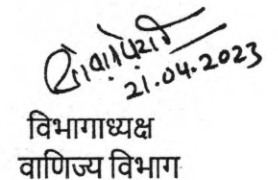 21.04.2023
विभागाध्यक्ष
वाणिज्य विभाग